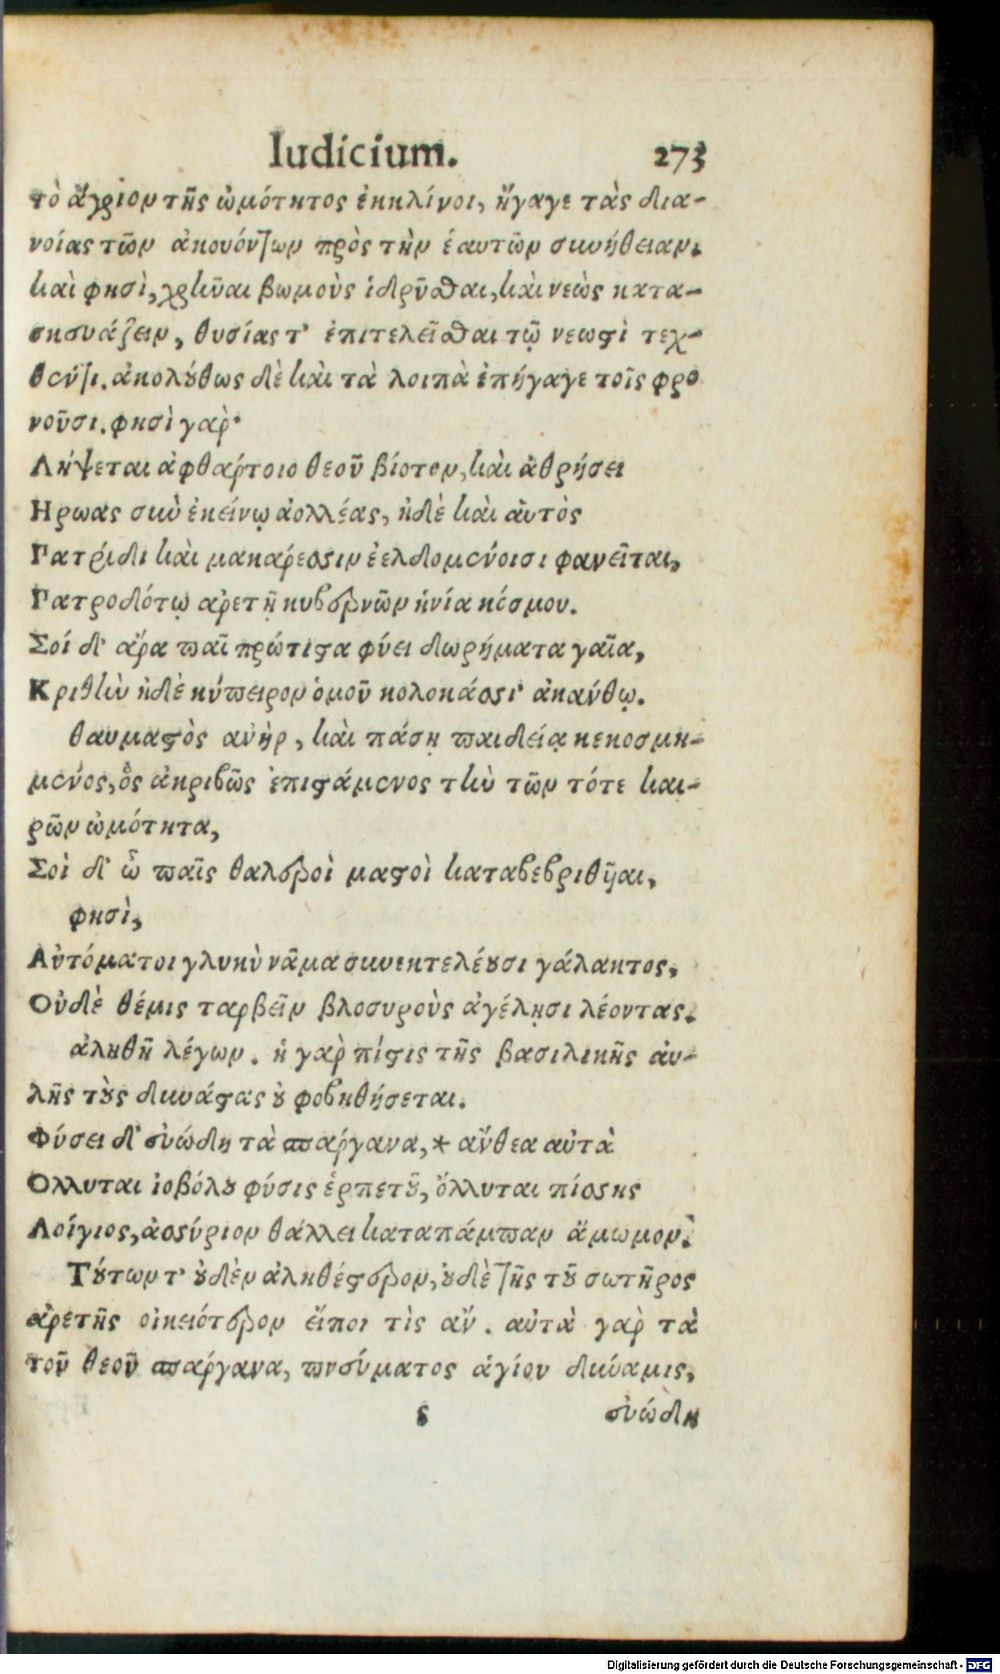 Iudicium. 273
τὸ ἄγριον τῆς ὠμότητος ἐκκλίνοι, ἤγαγε τὰς δια-
νοίας τῶν ἀκουόντων πρὸς τὴν ἑαυτῶν συνήθειαν.
καὶ φησὶ, χρῆναι βωμοὺς ἱδρῦσθαι, καὶ νεὼς κατα-
σκευάζειν, θυσίας τ' ἐπιτελεῖσθαι τῷ νεωστὶ τεχ-
θέντι. ἀκολούθως δὲ καὶ τὰ λοιπὰ ἐπήγαγε τοῖς φρο
νοῦσι. φησὶ γαρ·
Λήψεται ἀφθάρτοιο θεοῦ βίοτον, καὶ ἀθρήσει
Ηρωας σὺν ἐκείνῳ ἀολλέας, ἠδὲ καὶ αὐτὸς
Πατρίδι καὶ μακάρεσσιν ἐελδομένοισι φανεῖται,
Πατροδότῳ ἀρετῇ κυβερνῶν ἡνία κόσμου.
Σοί δ' ἄρα παῖ πρώτιστα φύει δωρήματα γαῖα,
Κριθὴν ἠδὲ κύπειρον ὁμοῦ κολοκάσσι' ἀκανθῳ.
θαυμαστὸς ἀνὴρ, καὶ πάσῃ παιδείᾳ κεκοσμη-
μένος, ὃς ἀκριβῶς ἐπιστάμενος τὴν τῶν τότε και-
ρῶν ὠμότητα,
Σοὶ δ' ὦ παῖς θαλεροὶ μαστοὶ καταβεβριθῆαι,
φησὶ,
Αὐτόματοι γλυκὺ νᾶμα συνεκτελέουσι γάλακτος,
Οὐδὲ θέμις ταρβεῖν βλοσυροὺς ἀγέλῃσι λέοντας.
ἀληθῆ λέγων. ἡ γὰρ πίστις τῆς βασιλικῆς αὐ-
λῆς τοὺς δυνάστας οὐ φοβηθήσεται.
Φύσει δ' εὐώδη τὰ σπάργανα, * ἄνθεα αὐτὰ
Ολλυται ἰοβόλου φύσις ἑρπετοῦ, ὄλλυται πίοσης
Λοίγιος, ἀσσύριον θάλλει καταπάμπαν ἄμωμον.
Τούτων τ' οὐδὲν ἀληθέστερον, οὐδὲ τῆς τοῦ σωτῆρος
ἀρετῆς οἰκειότερον εἴποι τὶς ἄν. αὐτὰ γὰρ τὰ
τοῦ θεοῦ σπάργανα, πνεύματος ἁγίου δύναμις,
ς εὐώδη
Digitalisierung gefördert durch die Deutsche Forschungsgemeinschaft - DFG